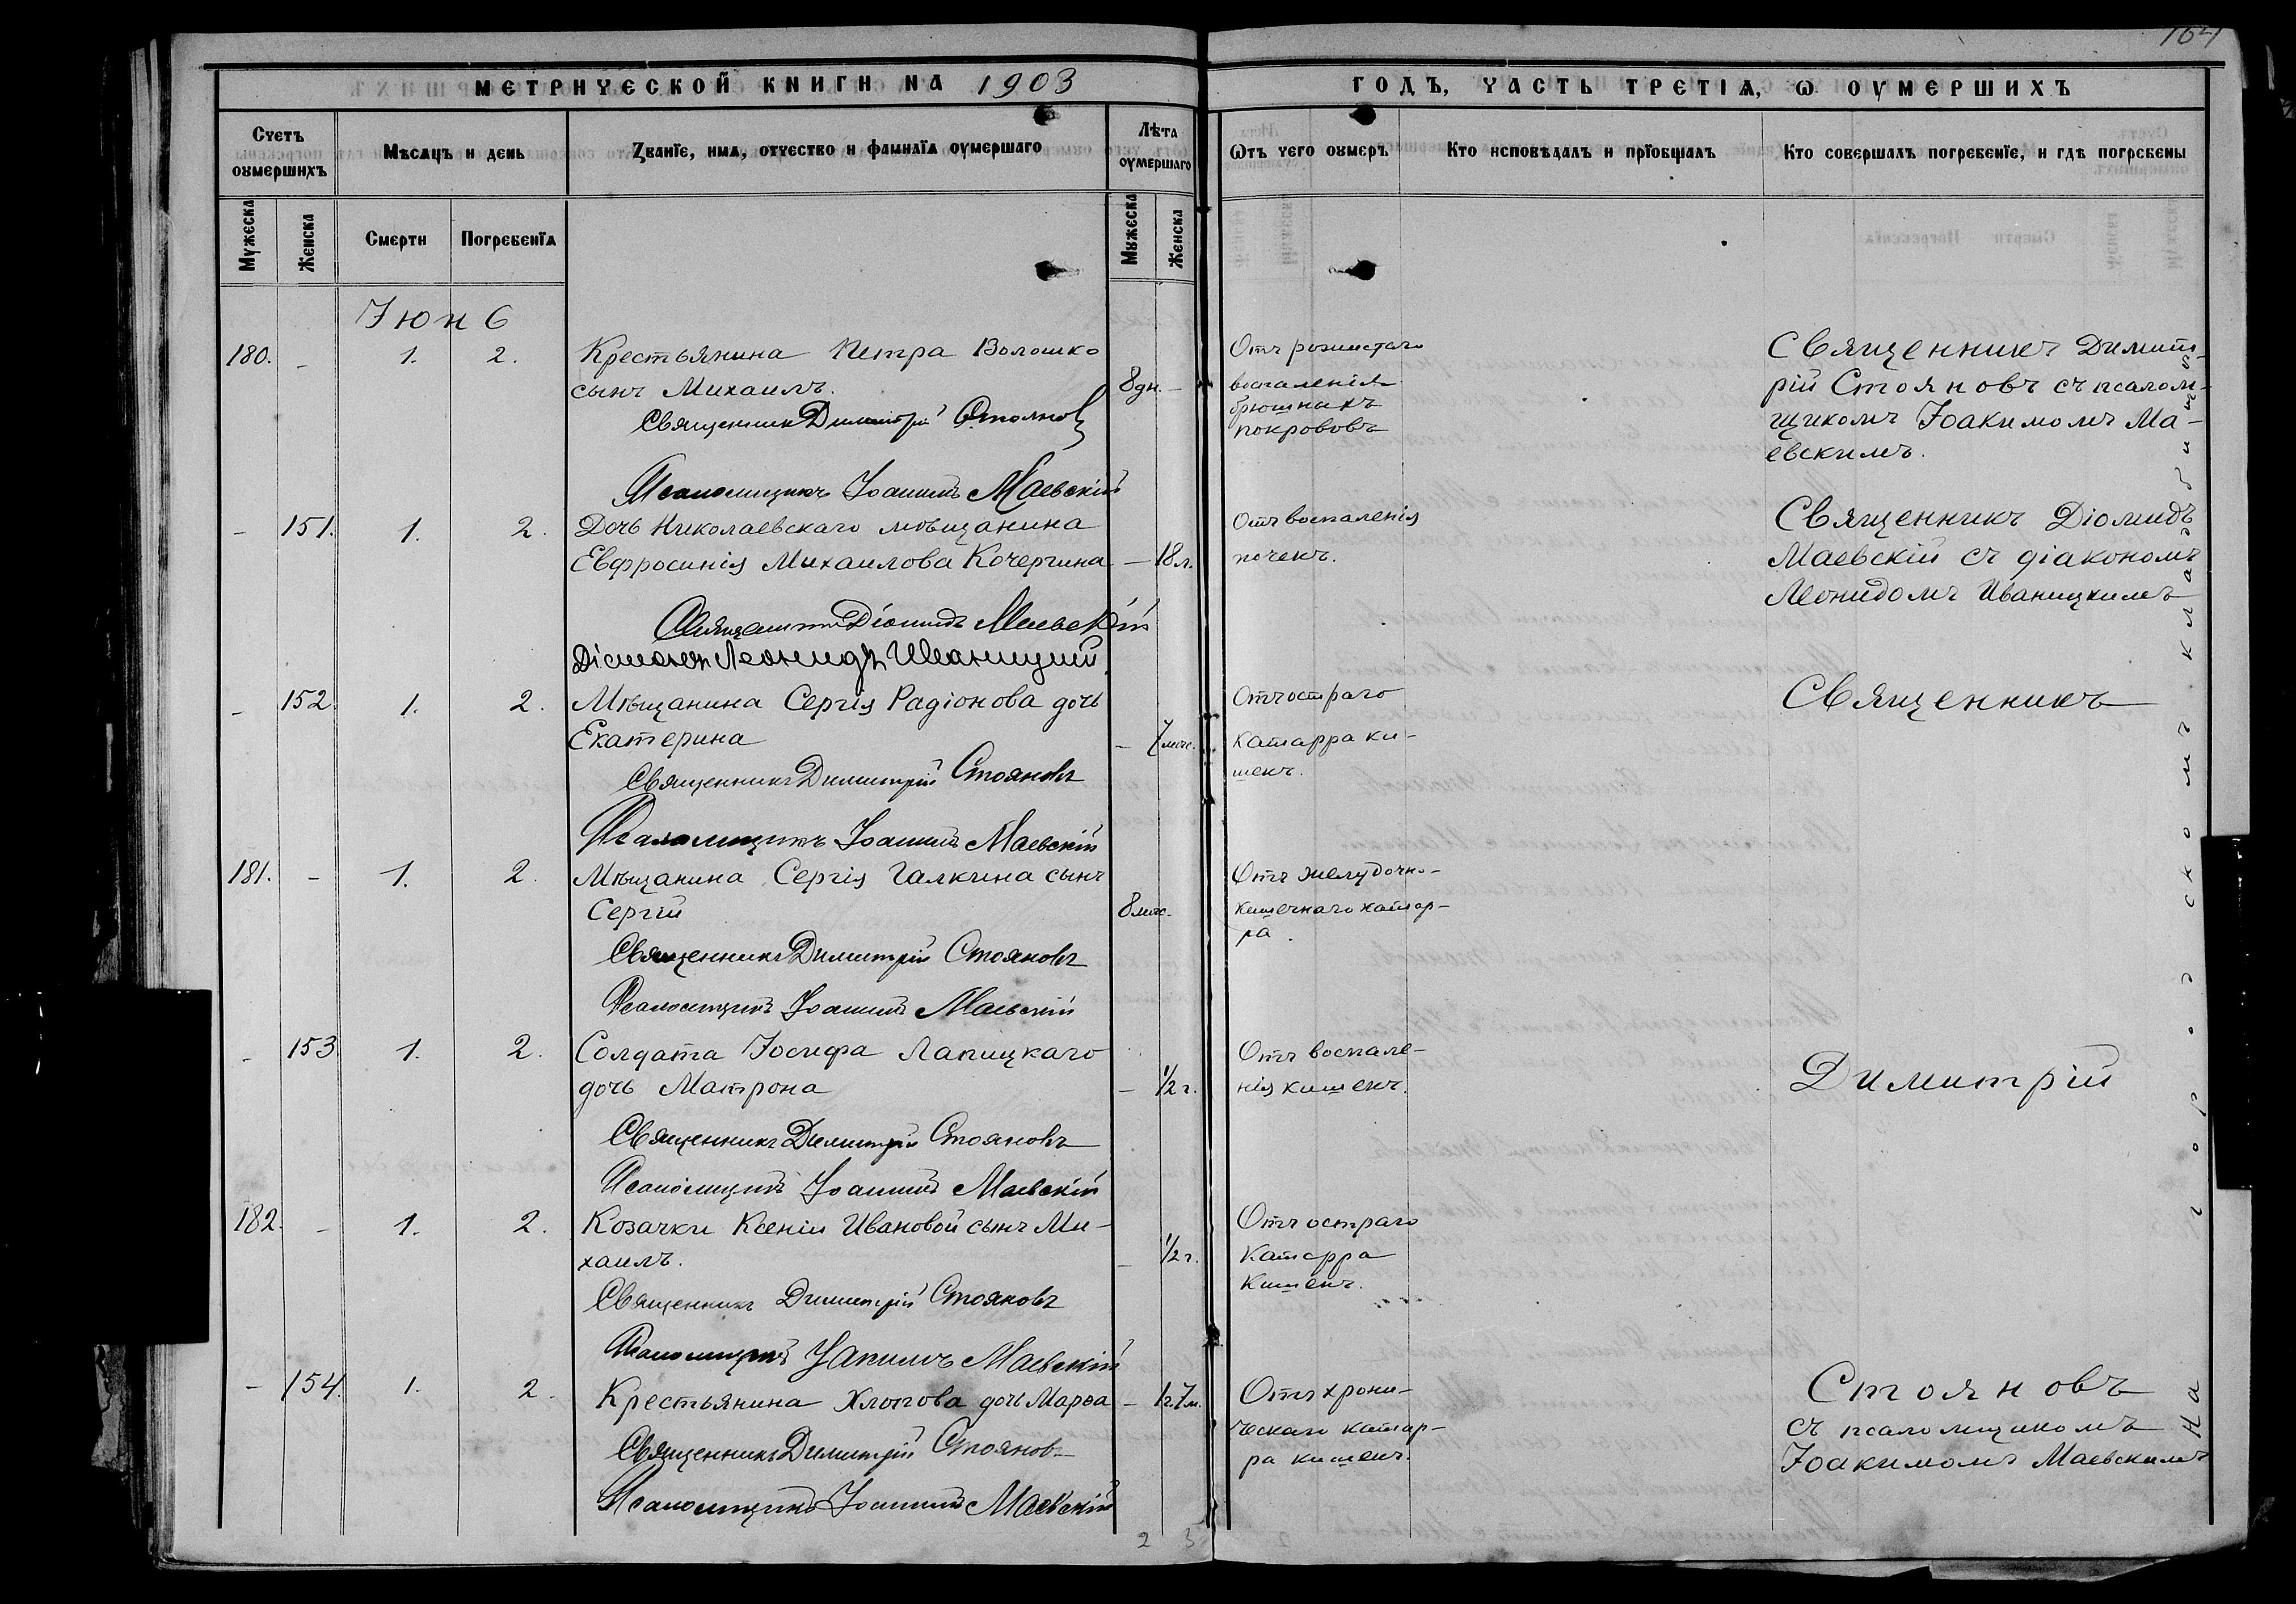 164
МЕТРИЧЕСКОЙ КНИГИ НА 1903
ГОДЪ, ЧАСТЬ ТРЕТІѦ, Ѡ ОУМЕРШИХЪ
Счетъ оумершихъ
Мѣсяцъ и день
Званіе, имѧ, отчество и фамиліѧ оумершаго
Лѣта оумершаго
Ѿтъ чего оумеръ
Кто исповѣдалъ и пріобщалъ
Кто совершалъ погребеніе, и гдѣ погребены
Мужеска
Женска
Смерти
Погребеніѧ
Мужеска
Женска
Іюнь
180. - 1. 2. Крестьянина Петра Волошко
сынъ Михаилъ. 8 дн. -
Священникъ Димитрій Стояновъ
Псаломщикъ Іоакимъ Маевскій
Отъ рожистаго
воспаленія
брюшныхъ
покрововъ
Священникъ Димит-
рій Стояновъ съ псалом-
щикомъ Іоакимомъ Ма-
евскимъ.
- 151. 1. 2. Дочь Николаевскаго мѣщанина
Евфросинія Михаилова Кочергина - 18 л.
Священникъ Діомидъ Маевскій
Діаконъ Леонидъ Иваницкій
Отъ воспаленія
почекъ.
Священникъ Діомидъ
Маевскій съ діакономъ
Леонидомъ Иваницкимъ
- 152. 1. 2. Мѣщанина Сергія Радіонова дочь
Екатерина - 7 мѣс.
Священникъ Димитрій Стояновъ
Псаломщикъ Іоакимъ Маевскій
Отъ остраго
катарра ки-
шекъ.
Священникъ
181. - 1. 2. Мѣщанина Сергія Галкина сынъ
Сергій 8 мѣс.
Священникъ Димитрій Стояновъ
Псаломщикъ Іоакимъ Маевскій
Отъ желудочно-
кишечнаго катар-
ра.
- 153. 1. 2. Солдата Іосифа Лапицкаго
дочь Матрона - 1/2 г.
Священникъ Димитрій Стояновъ
Псаломщикъ Іоакимъ Маевскій
Отъ воспале-
нія кишекъ.
Димитрій
182. - 1. 2. Козачки Ксеніи Ивановой сынъ Ми-
хаилъ. - 1/2 г.
Священникъ Димитрій Стояновъ
Псаломщикъ Іакимъ Маевскій
Отъ остраго
катарра
кишекъ.
- 154. 1. 2. Крестьянина Хлопова дочь Марѳа - 1 г. 7 м.
Священникъ Димитрій Стоянов
Псаломщикъ Іоакимъ Маевскій
Отъ хрони-
ческаго катар-
ра кишекъ.
Стояновъ
съ псаломщикомъ
Іоакимомъ Маевскимъ
На городскомъ кладбищѣ
2 5